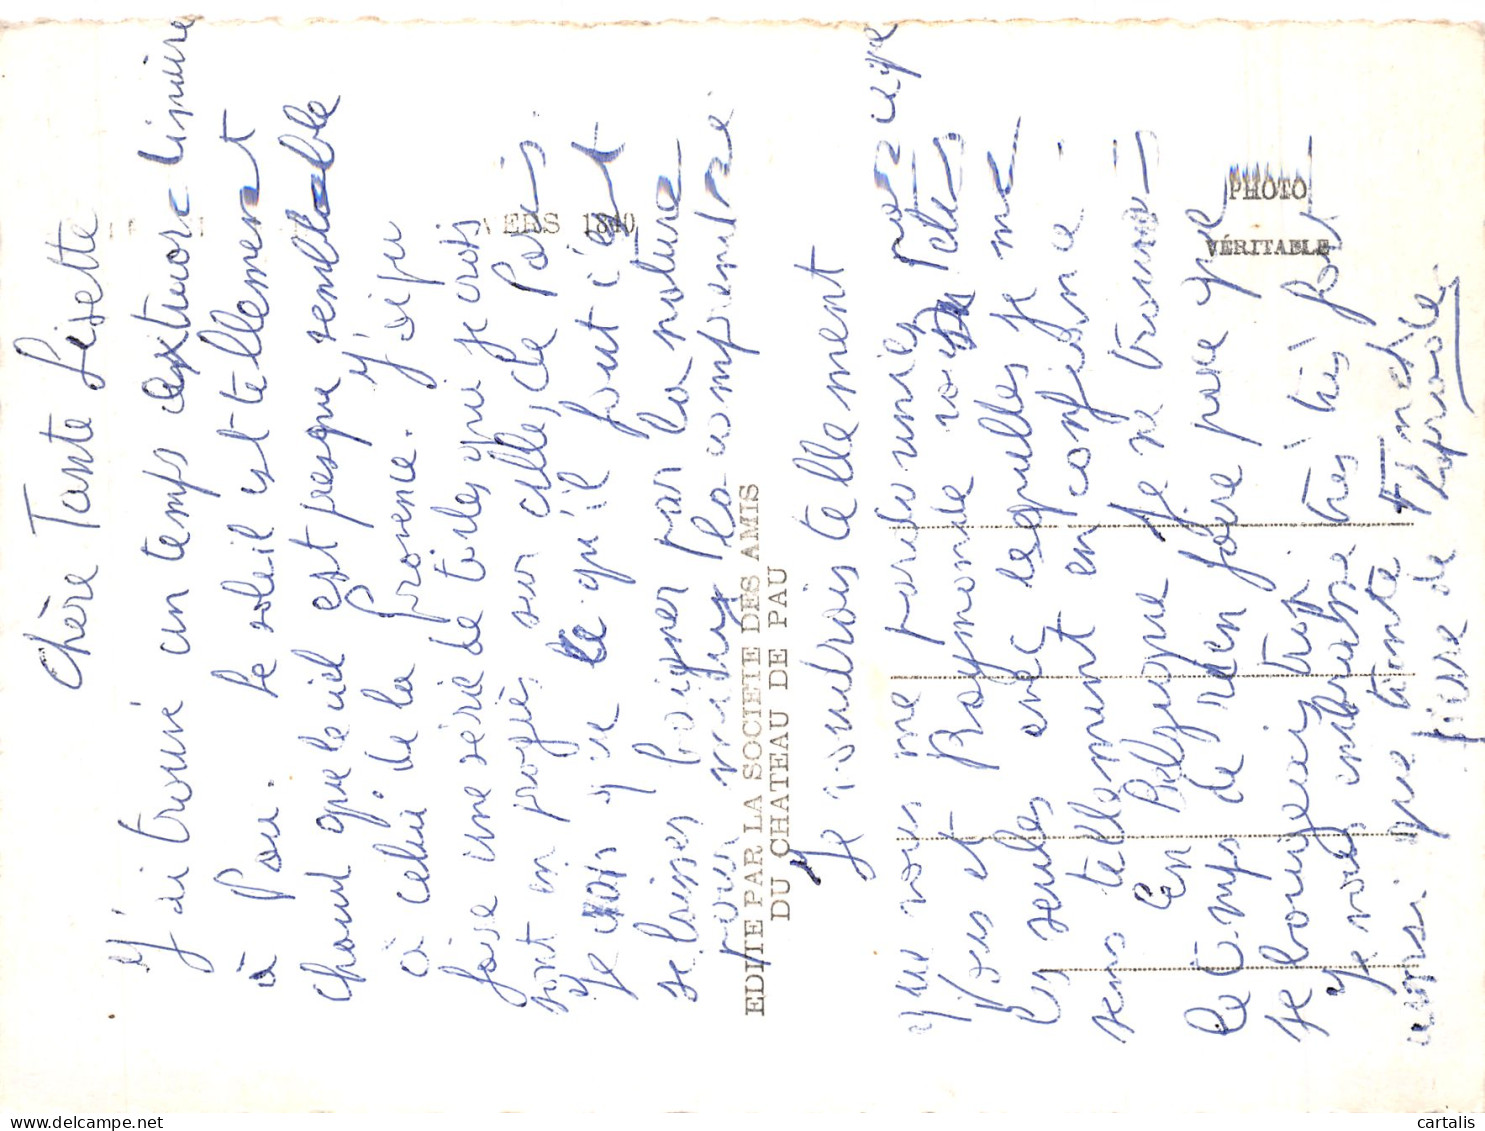 Chère Tante Lisette
J'ai trouvé un temps extraordinaire
à Pau. Le soleil est tellement
chaud que le ciel est presque semblable
à celui de la Provence. J'ai pu
faire une série de toiles que je crois
sont en progrès sur celle, de Paris
Je crois que ce qu'il faut c'est
se laisser baigner par la nature
pour mieux la comprendre
Je voudrais tellement
que vous me pardonniez, parce que
Vous et Raymonde vous êtes
les seules avec lesquelles je me
sens tellement en confiance.
En Belgique je ne trouvais
le temps de rien faire parce que
je bougeais trop
Je vous embrasse très très très fort
ainsi que tante Blanche
Pierre de
EDITE PAR LA SOCIETE DES AMIS
DU CHATEAU DE PAU
VERS 1840
PHOTO
VÉRITABLE
cartalis